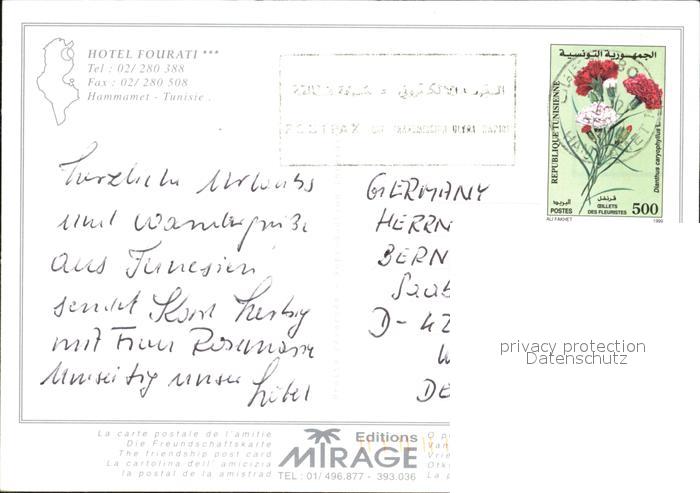 HOTEL FOURATI ***
Tel : 02/ 280 388
Fax : 02/ 280 508
Hammamet - Tunisie .
الجمهورية التونسية
REPUBLIQUE TUNISIENNE
Dianthus caryophyllus L
البريد
قرنفل
POSTES
ŒILLETS
DES FLEURISTES
500
ALI FAKHET
1999
herzliche Urlaubs
und Wandergrüße
aus Tunesien
sendet Karl Herbig
mit Frau Rosemarie
Umseitig unser Hotel
GERMANY
HERRN
BERN
Saab
D-42
W
DE
privacy protection
Datenschutz
La carte postale de l'amitie
Die Freundschaftskarte
The friendship post card
La cartolina dell' amicizia
la postal de la amistad
Editions
MIRAGE
TEL : 01/ 496.877 - 393.036